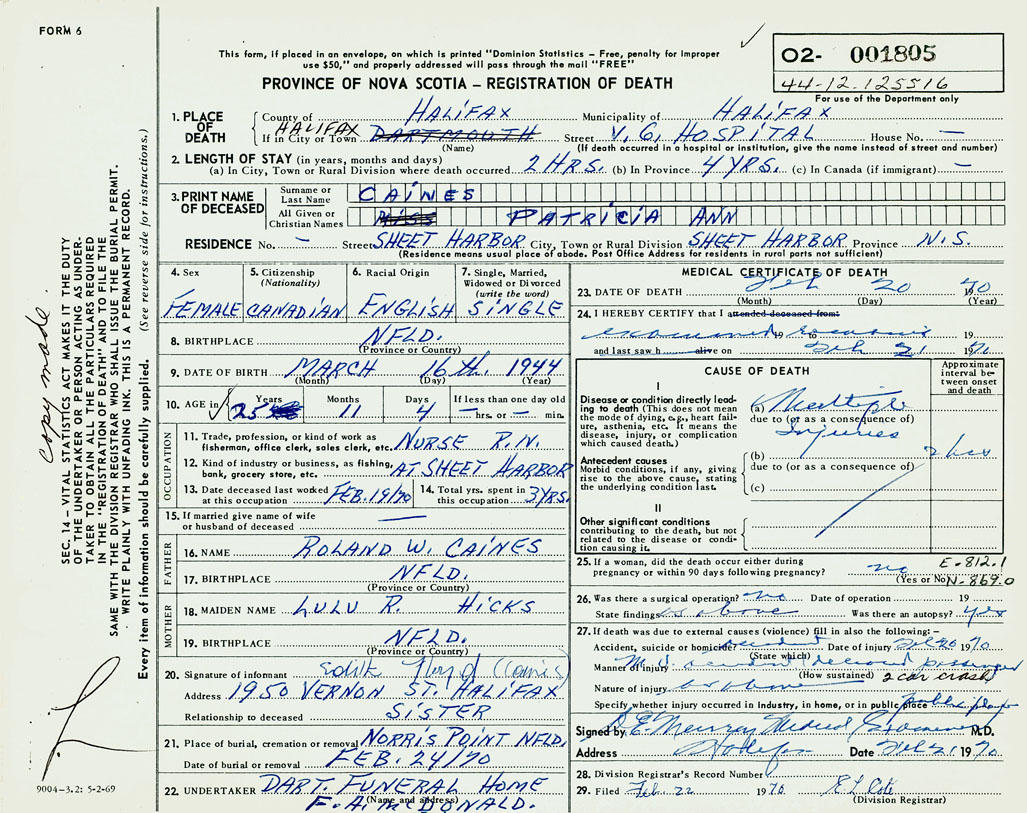 FORM 6
This form, if placed in an envelope, on which is printed "Dominion Statistics – Free, penalty for improper
use $50," and properly addressed will pass through the mail "FREE"
PROVINCE OF NOVA SCOTIA – REGISTRATION OF DEATH
O2- 001805
44-12.125516
For use of the Department only
copy made.
SEC. 14 – VITAL STATISTICS ACT MAKES IT THE DUTY
OF THE UNDERTAKER OR PERSON ACTING AS UNDER-
TAKER TO OBTAIN ALL THE PARTICULARS REQUIRED
IN THE "REGISTRATION OF DEATH" AND TO FILE THE
SAME WITH THE DIVISION REGISTRAR WHO SHALL ISSUE THE BURIAL PERMIT.
WRITE PLAINLY WITH UNFADING INK. THIS IS A PERMANENT RECORD.
Every item of information should be carefully supplied. (See reverse side for instructions.)
1. PLACE OF DEATH
County of HALIFAX Municipality of HALIFAX
If in City or Town HALIFAX DARTMOUTH Street V. G. HOSPITAL House No. —
(Name) (If death occurred in a hospital or institution, give the name instead of street and number)
2. LENGTH OF STAY (in years, months and days)
(a) In City, Town or Rural Division where death occurred 2 HRS. (b) In Province 4 YRS. (c) In Canada (if immigrant) —
3. PRINT NAME OF DECEASED
Surname or Last Name CAINES
All Given or Christian Names MISS PATRICIA ANN
RESIDENCE No. – Street SHEET HARBOR City, Town or Rural Division SHEET HARBOR Province N.S.
(Residence means usual place of abode. Post Office Address for residents in rural parts not sufficient)
4. Sex FEMALE
5. Citizenship (Nationality) CANADIAN
6. Racial Origin ENGLISH
7. Single, Married, Widowed or Divorced (write the word) SINGLE
8. BIRTHPLACE NFLD.
(Province or Country)
9. DATE OF BIRTH MARCH 16th. 1944
(Month) (Day) (Year)
10. AGE in Years 25 Months 11 Days 4 If less than one day old — hrs. or — min.
OCCUPATION
11. Trade, profession, or kind of work as fisherman, office clerk, sales clerk, etc. NURSE R.N.
12. Kind of industry or business, as fishing, bank, grocery store, etc. AT SHEET HARBOR
13. Date deceased last worked at this occupation FEB. 19/70
14. Total yrs. spent in this occupation 3 YRS.
15. If married give name of wife or husband of deceased —
FATHER
16. NAME ROLAND W. CAINES
17. BIRTHPLACE NFLD.
(Province or Country)
MOTHER
18. MAIDEN NAME LULU R. HICKS
19. BIRTHPLACE NFLD.
(Province or Country)
20. Signature of informant Edith
Address 1950 VERNON ST. HALIFAX
Relationship to deceased SISTER
21. Place of burial, cremation or removal NORRIS POINT NFLD.
Date of burial or removal FEB. 24/70
22. UNDERTAKER DART. FUNERAL HOME
(Name and address) F. A. McDONALD.
9004-3.2: 5-2-69
MEDICAL CERTIFICATE OF DEATH
23. DATE OF DEATH Feb 20 1970
(Month) (Day) (Year)
24. I HEREBY CERTIFY that I attended deceased from:
examined 19 to 19
and last saw h alive on Feb 21 1970
CAUSE OF DEATH
Approximate interval between onset and death
I
Disease or condition directly leading to death (This does not mean the mode of dying, e.g., heart failure, asthenia, etc. It means the disease, injury, or complication which caused death.)
(a) Multiple Injuries
due to (or as a consequence of)
Antecedent causes
Morbid conditions, if any, giving rise to the above cause, stating the underlying condition last.
(b) 2 hrs
due to (or as a consequence of)
(c)
II
Other significant conditions contributing to the death, but not related to the disease or condition causing it.
25. If a woman, did the death occur either during pregnancy or within 90 days following pregnancy? no
(Yes or No)
E-812.1
N-869.0
26. Was there a surgical operation? no Date of operation 19
State findings as above Was there an autopsy? yes
27. If death was due to external causes (violence) fill in also the following:–
Accident, suicide or homicide? accident Date of injury Feb 20 1970
(State which)
Manner of injury M.V. accident deceased passenger
(How sustained) 2 car crash
Nature of injury as above
Specify whether injury occurred in Industry, in home, or in public place public place
Signed by Medical Examiner M.D.
Address Halifax Date Feb 21 1970
28. Division Registrar's Record Number
29. Filed Feb. 22 1970
(Division Registrar)